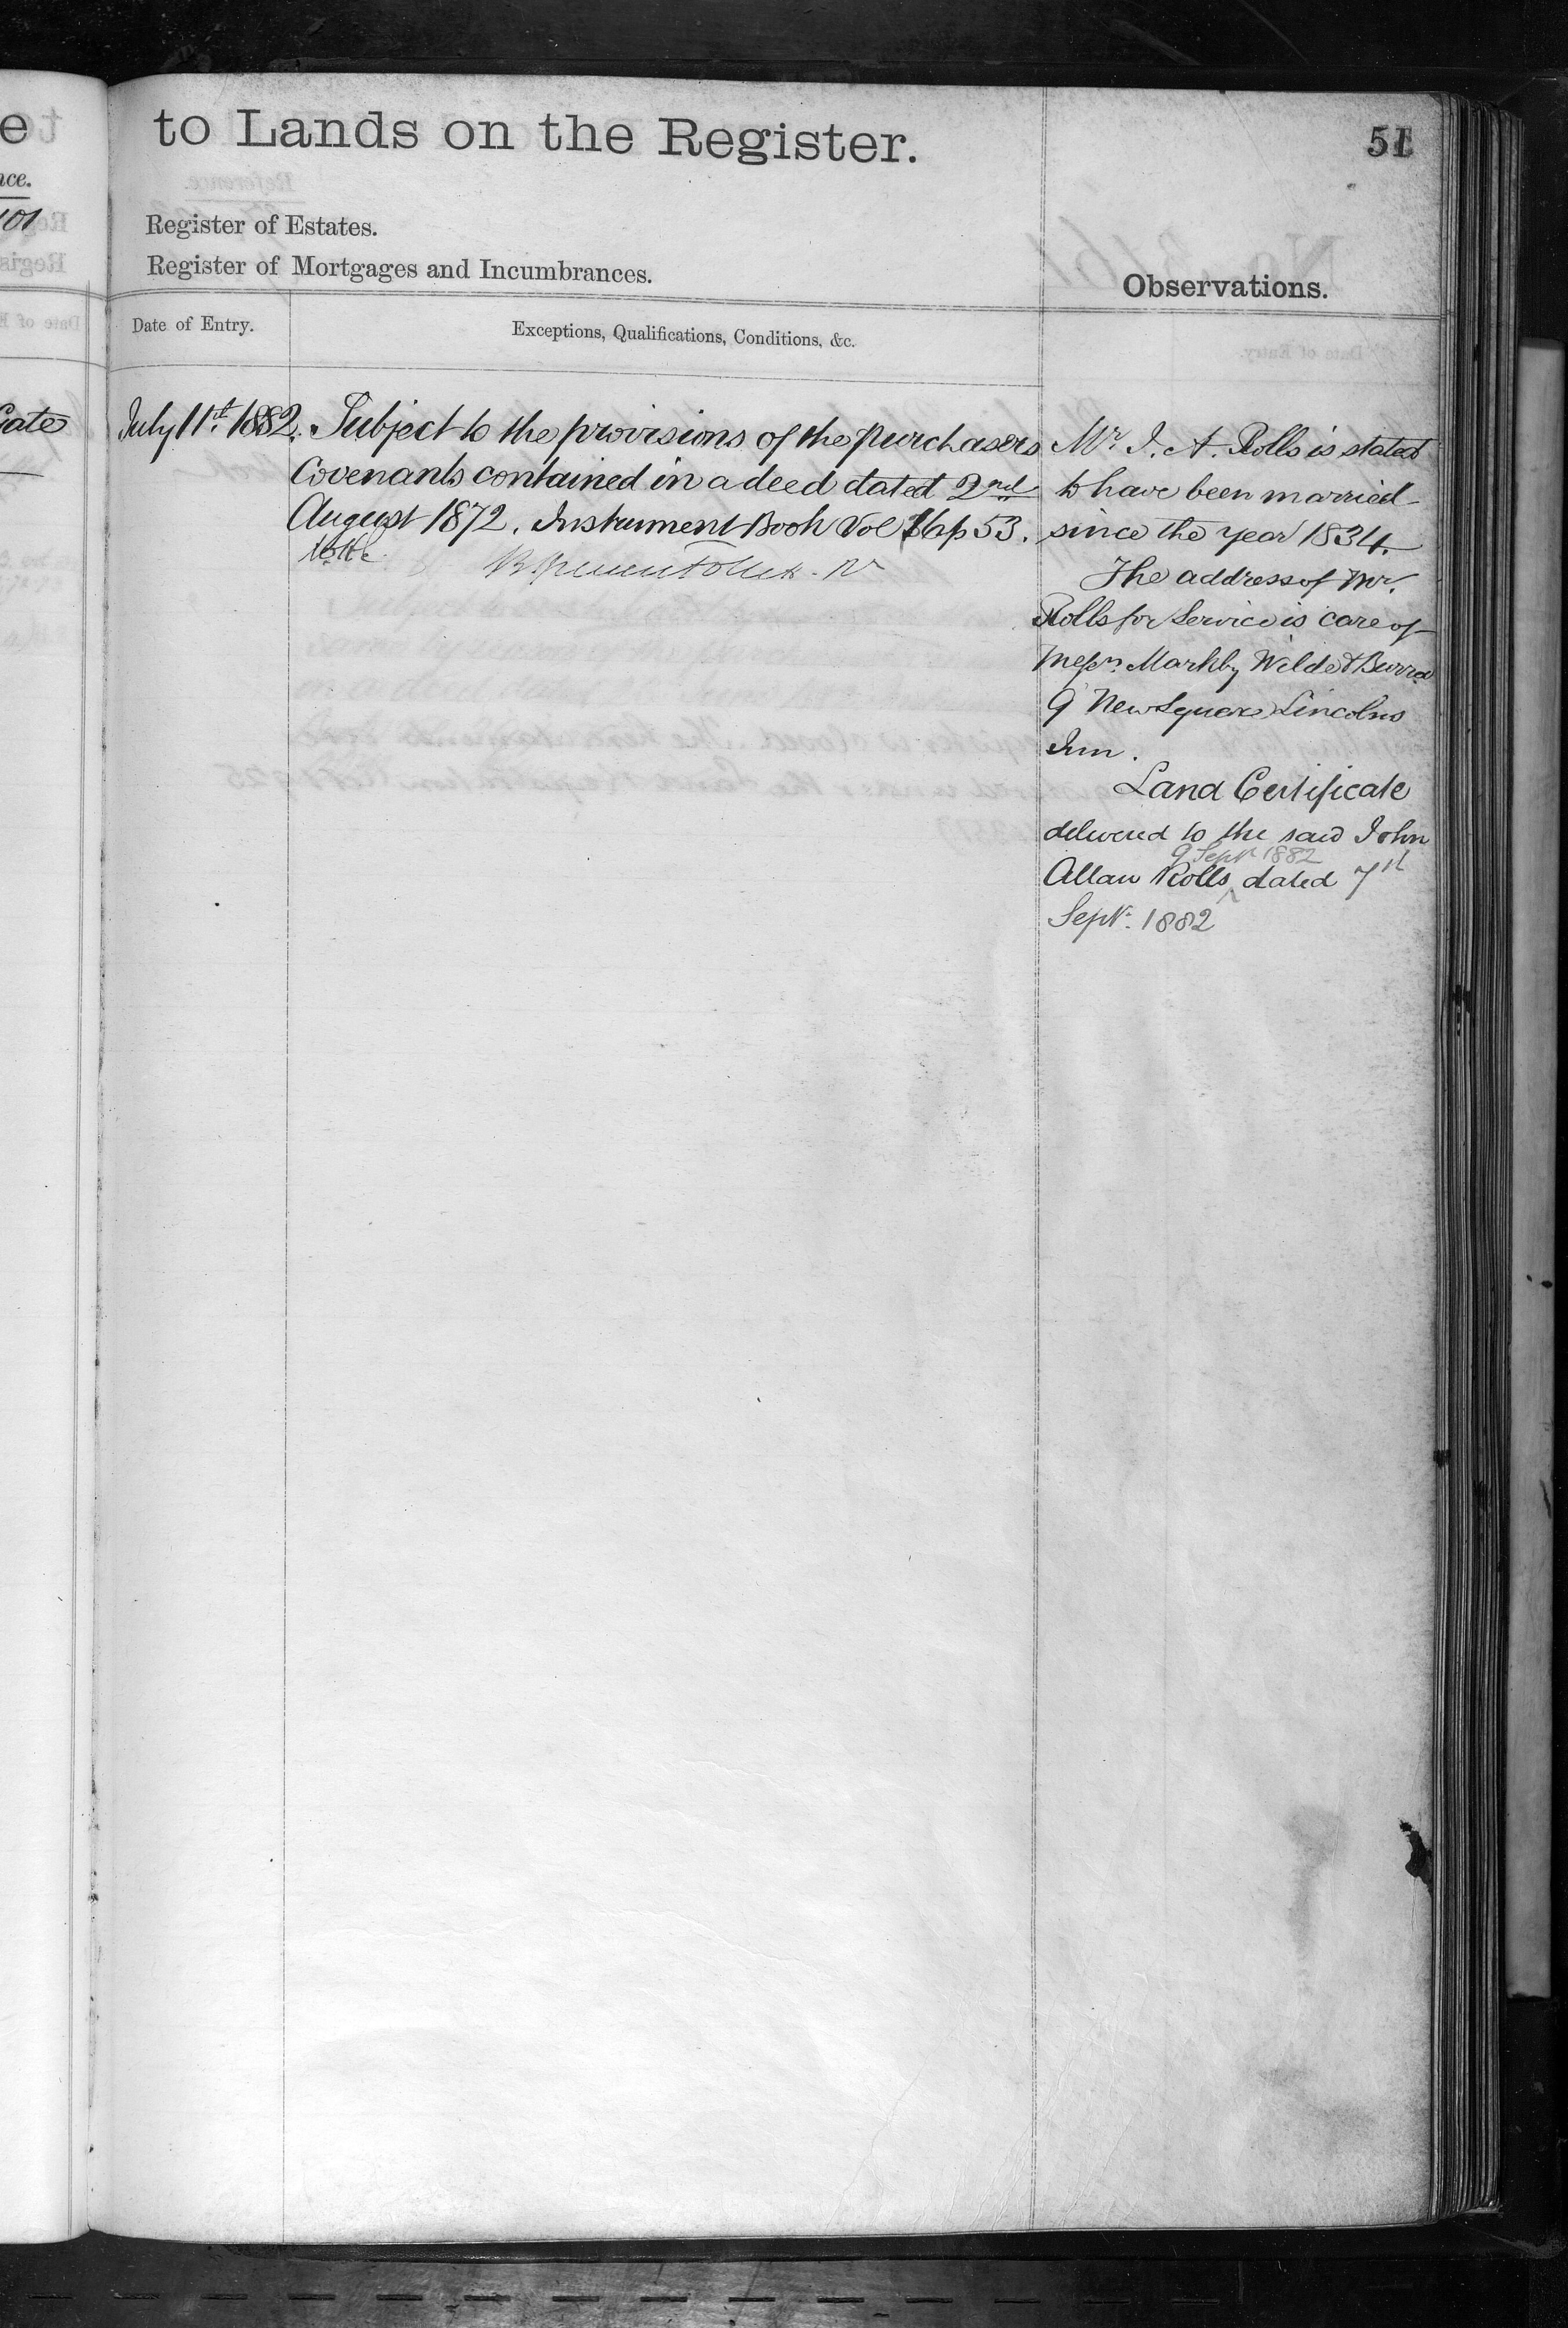 to Lands on the Register.
51
Register of Estates.
Register of Mortgages and Incumbrances.
Observations.
Date of Entry.
Exceptions, Qualifications, Conditions, &c.
July 11th. 1882. Subject to the provisions of the purchasers
Covenants contained in a deed dated 2nd
August 1872. Instrument Book Vol 16 p 53.
Mr. J. A. Rolls is stated
to have been married
since the year 1834.
The address of Mr.
Rolls for Service is care of
Messrs. Markby Wilde & Burra
9 New Square Lincolns
Inn.
Land Certificate
delivered to the said John
9 Septr 1882
Allan Rolls ^ dated 7th
Septr. 1882
e
nce.
101
Gate